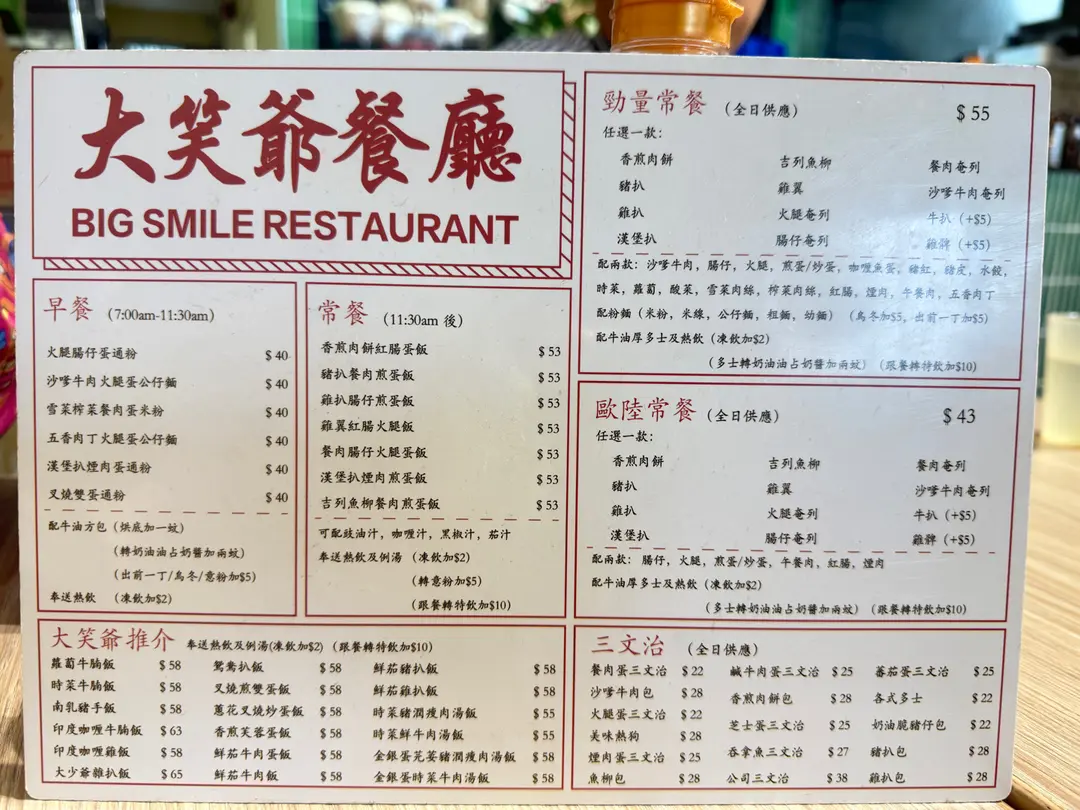 大笑爺餐廳
BIG SMILE RESTAURANT
早餐 (7:00am-11:30am)
火腿腸仔蛋通粉 $ 40
沙爹牛肉火腿蛋公仔麵 $ 40
雪菜榨菜餐肉蛋米粉 $ 40
五香肉丁火腿蛋公仔麵 $ 40
漢堡扒煙肉蛋通粉 $ 40
叉燒雙蛋通粉 $ 40
配牛油方包 (烘底加一蚊)
(轉奶油油占奶醬加兩蚊)
(出前一丁/烏冬/意粉加$5)
奉送熱飲 (凍飲加$2)
常餐 (11:30am 後)
香煎肉餅紅腸蛋飯 $ 53
豬扒餐肉煎蛋飯 $ 53
雞扒腸仔煎蛋飯 $ 53
雞翼紅腸火腿飯 $ 53
餐肉腸仔火腿飯 $ 53
漢堡扒煙肉煎蛋飯 $ 53
吉列魚柳餐肉煎蛋飯 $ 53
可配豉油汁, 咖喱汁, 黑椒汁, 茄汁
奉送熱飲及例湯 (凍飲加$2)
(轉意粉加$5)
(跟餐轉特飲加$10)
勁量常餐 (全日供應) $ 55
任選一款:
香煎肉餅 吉列魚柳 餐肉奄列
豬扒 雞翼 沙爹牛肉奄列
雞扒 火腿奄列 牛扒 (+$5)
漢堡扒 腸仔奄列 雞髀 (+$5)
配兩款: 沙爹牛肉, 腸仔, 火腿, 煎蛋/炒蛋, 咖喱魚蛋, 豬紅, 豬皮, 水餃,
時菜, 蘿蔔, 酸菜, 雪菜肉絲, 榨菜肉絲, 紅腸, 煙肉, 午餐肉, 五香肉丁
配粉麵 (米粉, 米線, 公仔麵, 粗麵, 幼麵) (烏冬加$5, 出前一丁加$5)
配牛油厚多士及熱飲 (凍飲加$2)
(多士轉奶油油占奶醬加兩蚊) (跟餐轉特飲加$10)
歐陸常餐 (全日供應) $ 43
任選一款:
香煎肉餅 吉列魚柳 餐肉奄列
豬扒 雞翼 沙爹牛肉奄列
雞扒 火腿奄列 牛扒 (+$5)
漢堡扒 腸仔奄列 雞髀 (+$5)
配兩款: 腸仔, 火腿, 煎蛋/炒蛋, 午餐肉, 紅腸, 煙肉
配牛油厚多士及熱飲 (凍飲加$2)
(多士轉奶油油占奶醬加兩蚊) (跟餐轉特飲加$10)
大笑爺推介 奉送熱飲及例湯(凍飲加$2) (跟餐轉特飲加$10)
蘿蔔牛腩飯 $ 58 鴛鴦扒飯 $ 58 鮮茄豬扒飯 $ 58
時菜牛腩飯 $ 58 叉燒煎雙蛋飯 $ 58 鮮茄雞扒飯 $ 58
南乳豬手飯 $ 58 蔥花叉燒炒蛋飯 $ 58 時菜豬潤瘦肉湯飯 $ 55
印度咖喱牛腩飯 $ 63 香煎芙蓉蛋飯 $ 58 時菜鮮牛肉湯飯 $ 55
印度咖喱雞飯 $ 58 鮮茄牛肉蛋飯 $ 58 金銀蛋芫荽豬潤瘦肉湯飯 $ 58
大少爺雜扒飯 $ 65 鮮茄牛肉飯 $ 58 金銀蛋時菜牛肉湯飯 $ 58
三文治 (全日供應)
餐肉蛋三文治 $ 22 鹹牛肉蛋三文治 $ 25 蕃茄蛋三文治 $ 25
沙爹牛肉包 $ 28 香煎肉餅包 $ 28 各式多士 $ 22
火腿蛋三文治 $ 22 芝士蛋三文治 $ 25 奶油脆豬仔包 $ 22
美味熱狗 $ 28
煙肉蛋三文治 $ 25 吞拿魚三文治 $ 27 豬扒包 $ 28
魚柳包 $ 28 公司三文治 $ 38 雞扒包 $ 28